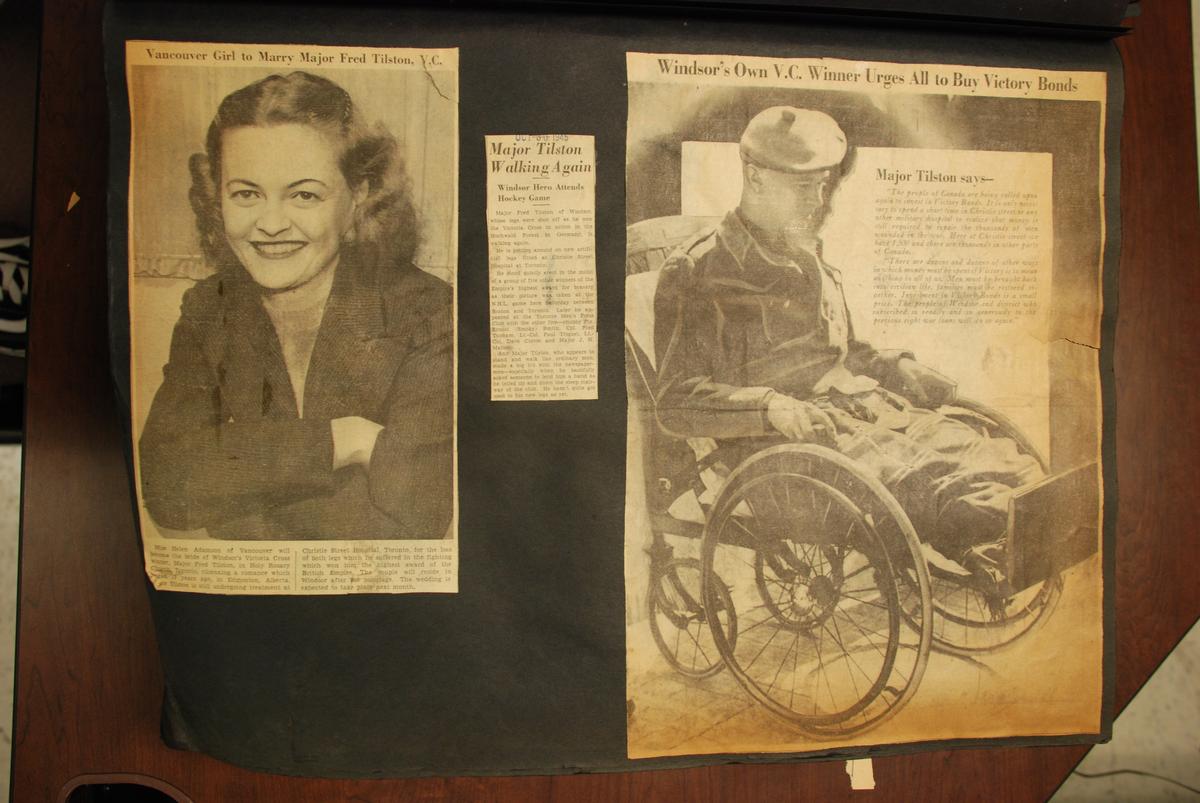 Vancouver Girl to Marry Major Fred Tilston, V.C.
Miss Helen Adamson of Vancouver will
become the bride of Windsor's Victoria Cross
winner, Major Fred Tilston, in Holy Rosary
Toronto, climaxing a romance which
years ago, in Edmonton, Alberta.
Tilston is still undergoing treatment at
Christie Street Hospital, Toronto, for the loss
of both legs which he suffered in the fighting
which won him the highest award of the
British Empire. The couple will reside in
Windsor after the marriage. The wedding is
expected to take place next month.
OCT 30 1945
Major Tilston
Walking Again
Windsor Hero Attends
Hockey Game
Major Fred Tilston of Windsor,
whose legs were shot off as he won
the Victoria Cross in action in the
Hochwald Forest in Germany, is
walking again.
He is getting around on new artifi-
cial legs fitted at Christie Street
Hospital at Toronto.
He stood quietly erect in the midst
of a group of five other winners of the
Empire's highest award for bravery
as their picture was taken at the
N.H.L. game here Saturday between
Boston and Toronto. Later he ap-
peared at the Toronto Men's Press
Club with the other five—
Ernest (Smoky) Smith, Cpl. Fred
Topham, Lt.-Col. Paul Triquet, Lt.-
Col. Dave Currie and Major J. H.
And Major Tilston, who appears to
stand and walk like ordinary men,
made a big hit with the newspaper-
men—especially when he bashfully
asked someone to lend him a hand as
he toiled up and down the steep stair-
way of the club. He hasn't quite got
used to his new legs as yet.
Windsor's Own V.C. Winner Urges All to Buy Victory Bonds
Major Tilston says—
"The people of Canada are being called upon
again to invest in Victory Bonds. It is only neces-
sary to spend a short time in Christie street or any
other military hospital to realize that money is
still required to repair the thousands of men
wounded in the war. Here at Christie street we
have 1,500 and there are thousands in other parts
of Canada.
"There are dozens and dozens of other ways
in which money must be spent if Victory is to mean
anything to all of us. Men must be brought back
into civilian life, families must be reunited
Investment in Victory Bonds is a small
price. The people of Windsor and district who
subscribed so readily and so generously to the
previous eight war loans will do so again."